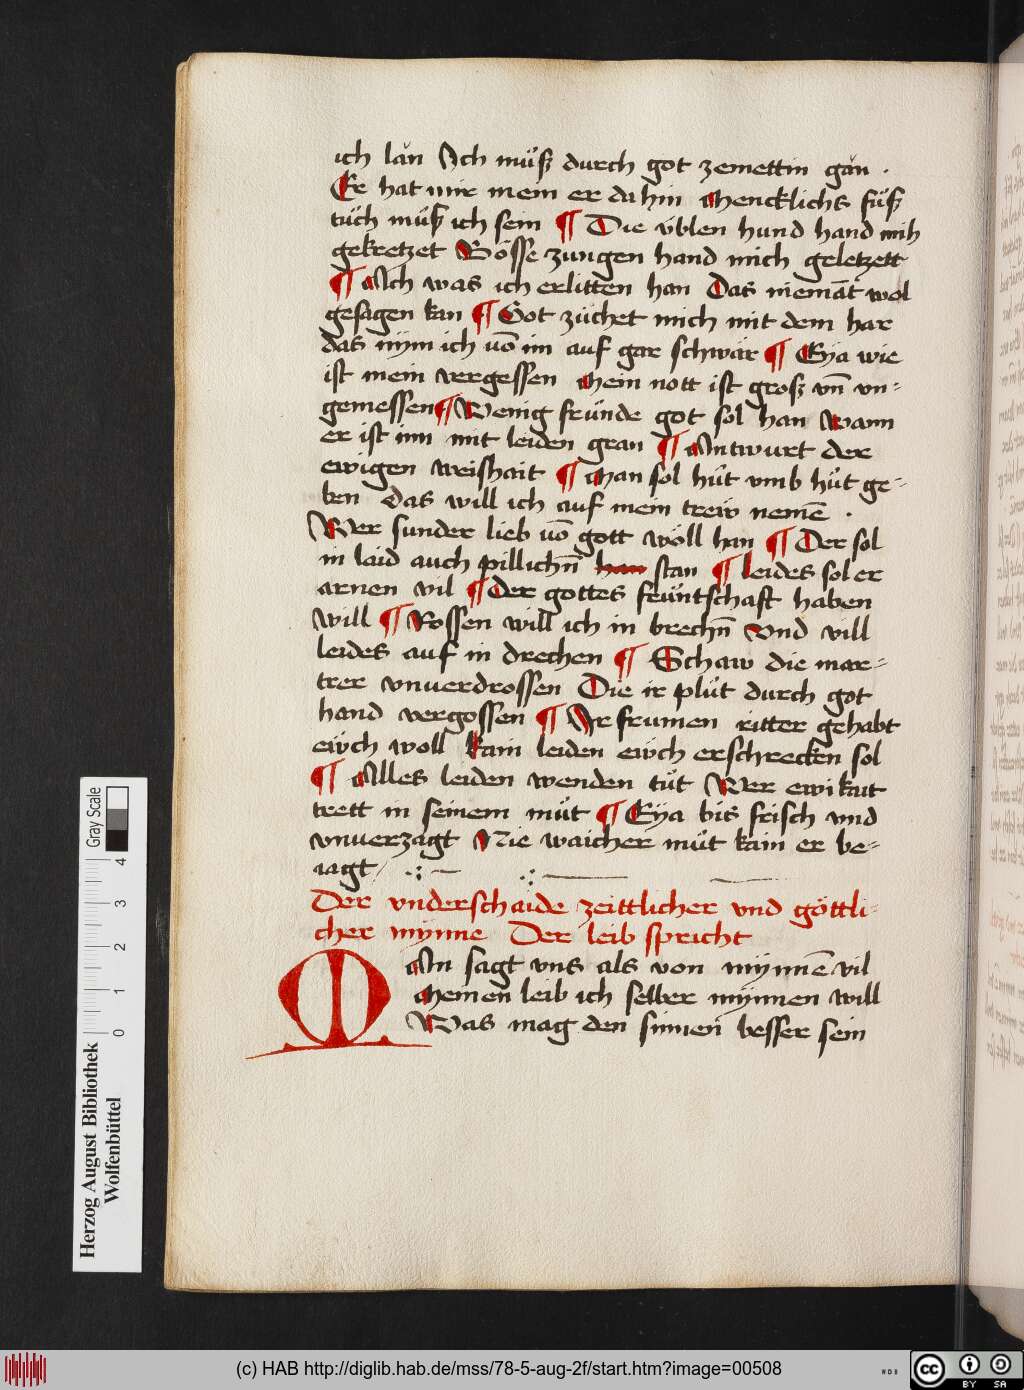 ich lăn Ich müſz durch got zemettin găn ·
Er hat mir mein er da hin Mencklichs fuͤſz
tuͤch müſz ich sein ¶ Die v̈blen hund hand mih
gekretzet Boͤsse zungen hand mich geletzett
¶ Ach was ich erlitten han Das niemāt wol
gesagen kan ¶ Got züchet mich mit dem har
das nym ich uō im auf gar schwär ¶ Eya wie
ist mein vergessen Mein nott ist grosz vn̄ vn-
gemessen ¶ Wenig freünde got sol han Wann
er ist inn mit leiden gran ¶ Antwurt der
ewigen weishait ¶ Man sol hu̇t vmb hu̇t ge-
ben das will ich auf mein treẅ nemē ·
Wer sunder lieb uō gott woͤll han ¶ Der sol
in laid auch pillichn̄ han stan ¶ leides sol er
arnen vil ¶ der gottes freüntschaft haben
will ¶ Rossen will ich in brechn̄ Vnd vill
leides auf in drechen ¶ Schaw die mar-
trer vnuerdrossen Die ir plu̇t durch got
hand vergossen ¶ Ir frumen ritter gehabt
eẅch woll kain leiden eẅch erschrecken sol
¶ Alles leiden wenden tu̇t Wer ewikait
trett in seinem mu̇t ¶ Eya bis frisch vnd
vnuerzagt Nie waicher mu̇t kain er be-
iagt
Der vnderschaide zeittlicher vnd goͤttli-
cher mynne Der leib spricht
MAn sagt vns als von mynnē vil
Meinen leib ich selber mynnen will
Was mag den sinnen besser sein
Herzog August Bibliothek
Wolfenbüttel
0 1 2 3 4
Gray Scale
(c) HAB http://diglib.hab.de/mss/78-5-aug-2f/start.htm?image=00508
WDB
CC BY SA